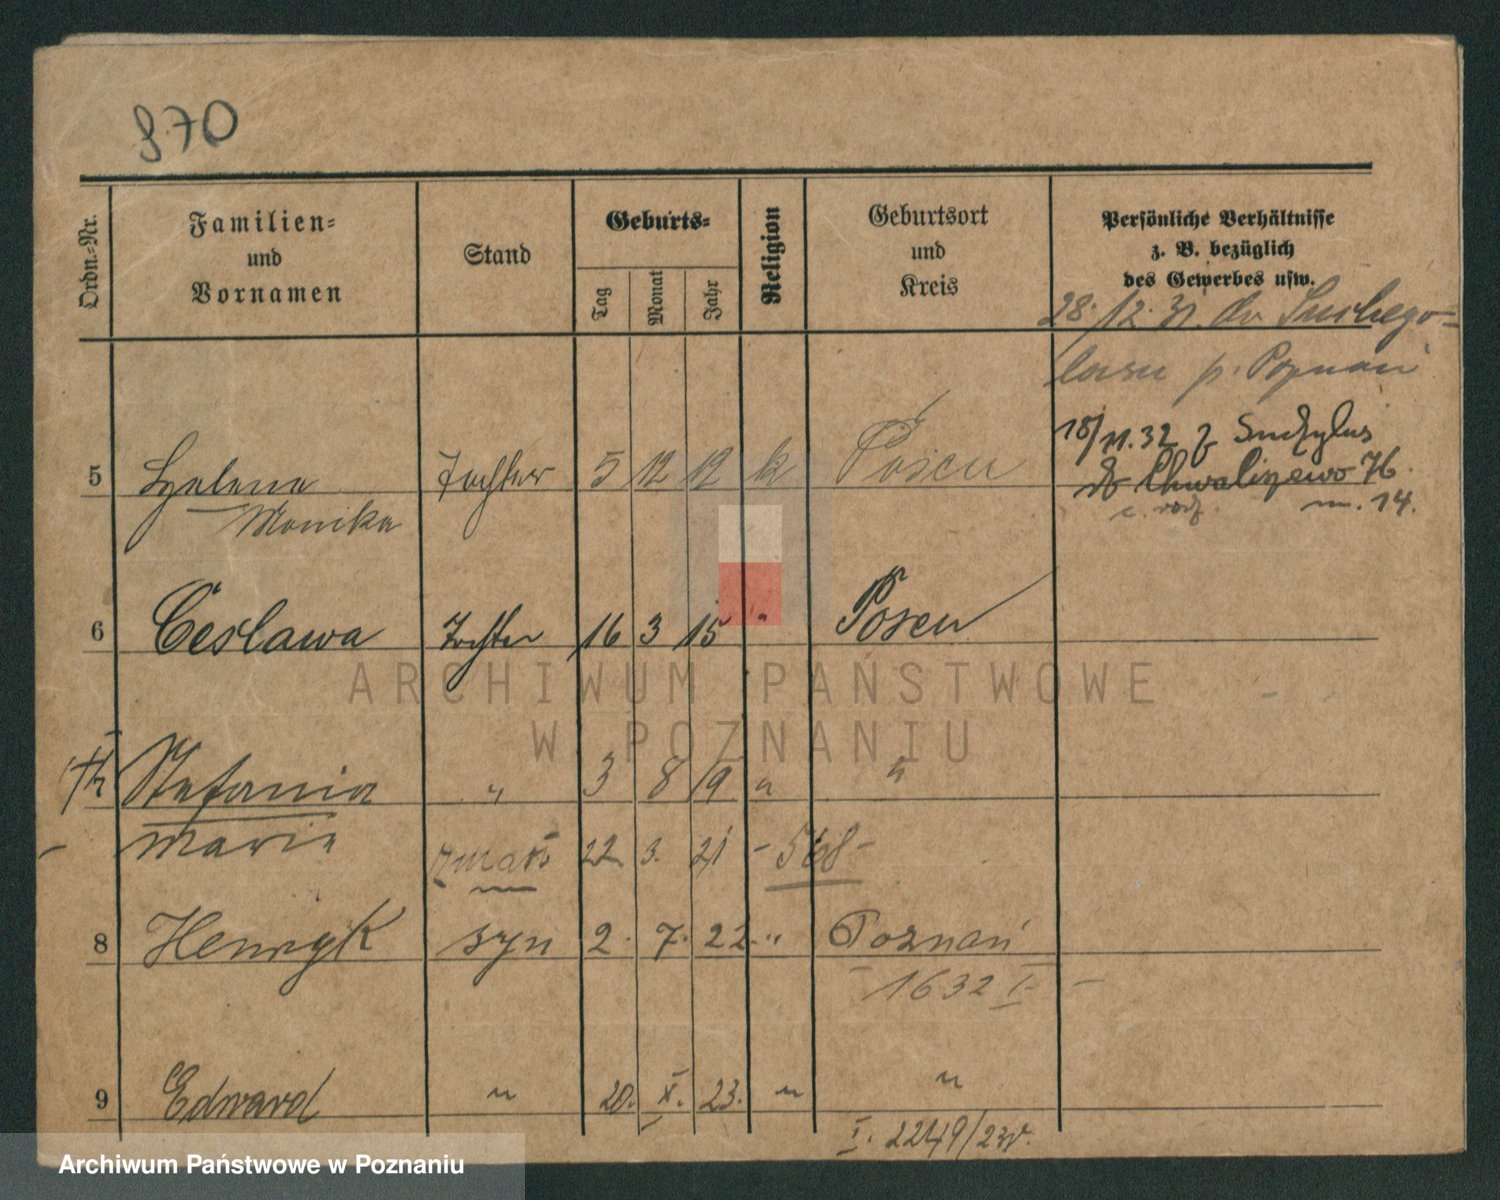 970
Ordn.-Nr.
Familien-
und
Vornamen
Stand
Geburts-
Tag
Monat
Jahr
Religion
Geburtsort
und
Kreis
Persönliche Verhältnisse
z. B. bezüglich
des Gewerbes usw.
28./12. 31. do
p. Poznań
5 Helena Tochter 5 12 12 k Posen
Monika
18/11.32 z
do Chwaliszewo 76
m. 14.
6 Cesława Tochter 16 3 15 " Posen
ARCHIWUM PAŃSTWOWE
W POZNANIU
7 Stefania " 3 8 19 " "
Maria zmarł 22. 3. 21 - 568 -
8 Henryk syn 2. 7. 22. " Poznań
1632 I.
9 Edward " 20. X. 23. " "
I. 2249/23r.
Archiwum Państwowe w Poznaniu